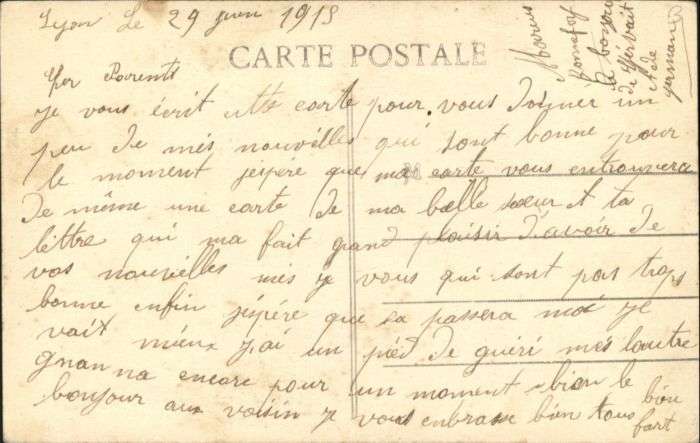 Lyon Le 29 juin 1915
CARTE POSTALE
Cher Parents
je vous écrit cette carte pour vous donner un
peu de mes nouvelles qui sont bonne pour
le moment jespére que ma carte vous entrouvera
de même une carte de ma bœlle sœur et ta
léttre qui ma fait grand plaisir d'avoir de
vos nouvelles més je vous qui sont pas trops
bonne enfin jespére que sa passera moi je
vait mieux j'ai un piéd de guéri més lautre
gnan na encore pour un moment bien le
bonjour aux voisin je vous enbrasse bien tous bien
fort
Marius
Bonnefoy
le bonjour
de
et de
germaine